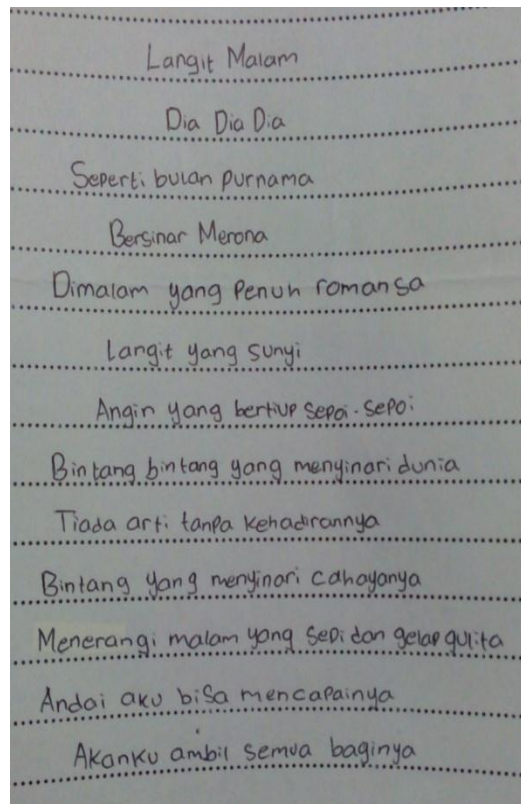 Langit Malam
Dia Dia Dia
Seperti bulan purnama
Bersinar Merona
Dimalam yang Penuh romansa
Langit yang sunyi
Angin yang bertiup sepoi-sepoi
Bintang bintang yang menyinari dunia
Tiada arti tanpa kehadirannya
Bintang yang menyinari cahayanya
Menerangi malam yang sepi dan gelap gulita
Andai aku bisa mencapainya
Akanku ambil semua baginya